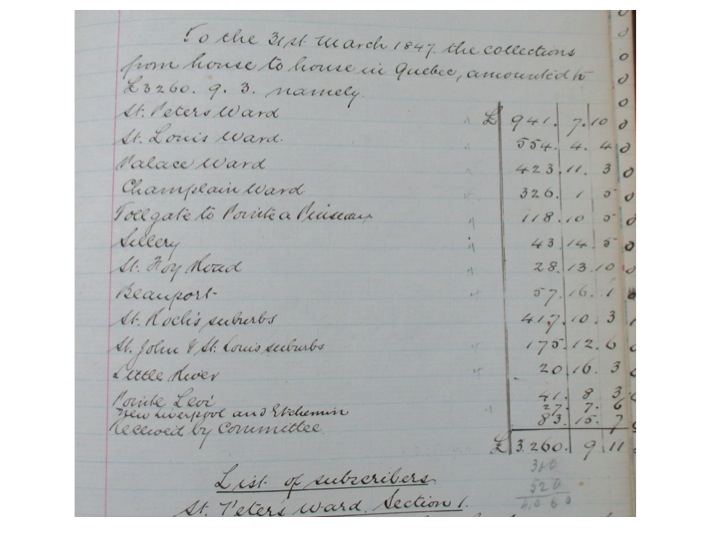 To the 31st March 1847 the collections
from house to house in Quebec, amounted to
£3260. 9. 3. namely
St. Peters Ward " £ 941. 7. 10
St. Louis Ward " 554. 4. 4
Palace Ward " 423. 11. 3
Champlain Ward " 326. 1 5
Tollgate to Pointe a " 118. 10 5
Sillery " 43. 14. 5
St. Foy Road " 28. 13. 10
Beauport " 57. 16. 1
St. Roch's suburbs 417. 10. 3
St. John & St. Louis suburbs " 175. 12. 6
Little River 20. 16. 3
Pointe Levi 41. 8 3
New Liverpool and Etchemin " 27. 7. 6
Received by Committee 83. 15. 7
£ 3.260. 9 11
List of subscribers
520
St. Peter's Ward. Section 1.